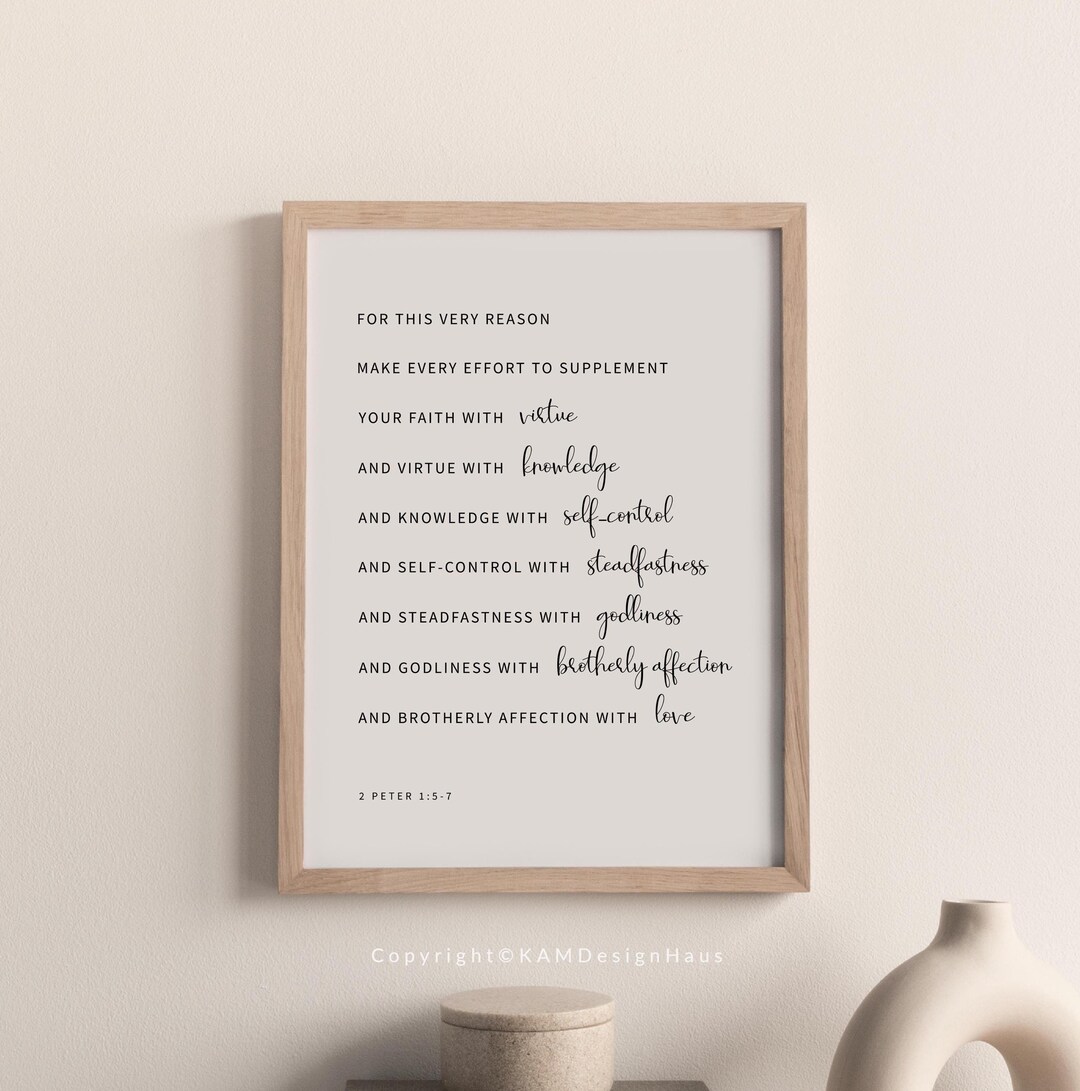 FOR THIS VERY REASON
MAKE EVERY EFFORT TO SUPPLEMENT
YOUR FAITH WITH virtue
AND VIRTUE WITH knowledge
AND KNOWLEDGE WITH self-control
AND SELF-CONTROL WITH steadfastness
AND STEADFASTNESS WITH godliness
AND GODLINESS WITH brotherly affection
AND BROTHERLY AFFECTION WITH love
2 PETER 1:5-7
Copyright©KAMDesignHaus